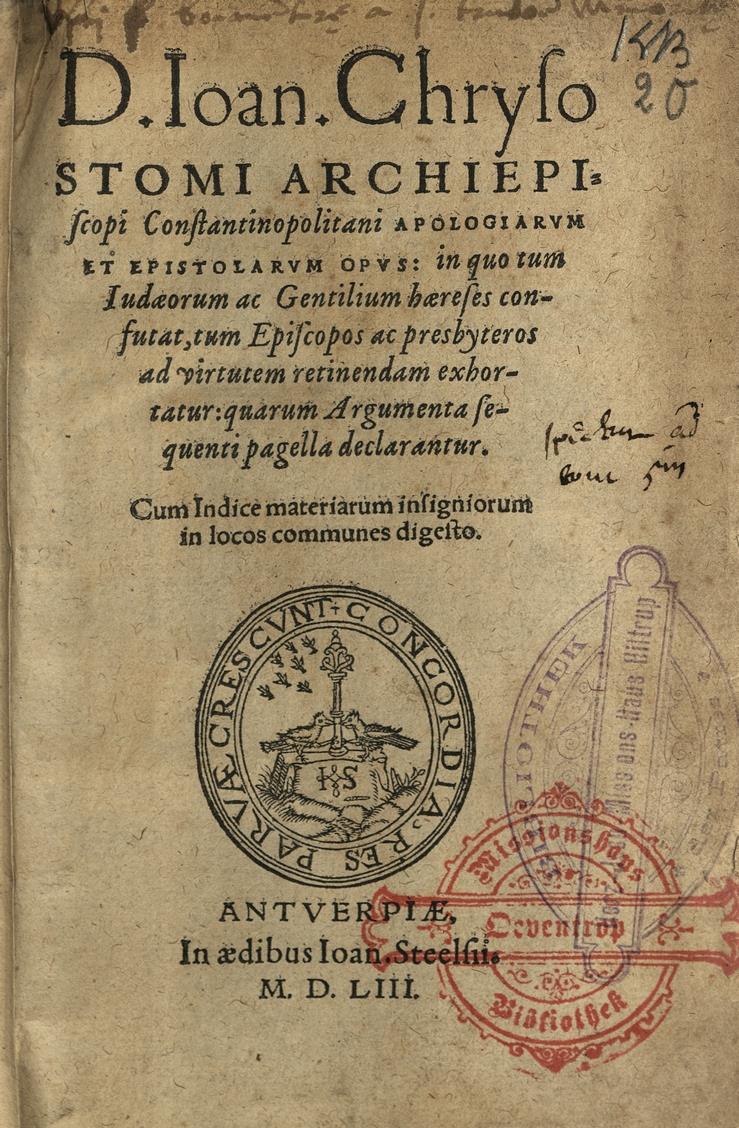 KB
20
D. Ioan. Chryſo
STOMI ARCHIEPI-
ſcopi Conſtantinopolitani APOLOGIARVM
ET EPISTOLARVM OPVS: in quo tum
Iudæorum ac Gentilium hæreſes con-
futat, tum Epiſcopos ac presbyteros
ad virtutem retinendam exhor-
tatur: quarum Argumenta ſe-
quenti pagella declarantur.
ad
Cum Indice materiarum inſigniorum
in locos communes digeſto.
CONCORDIA RES PARVÆ CRESCVNT
HS
BIBLIOTHEK
Missions-Haus Hiltrup
ANTVERPIÆ,
In ædibus Ioan. Steelſii.
M. D. LIII.
Missionshaus
Oeventrop
Bibliothek